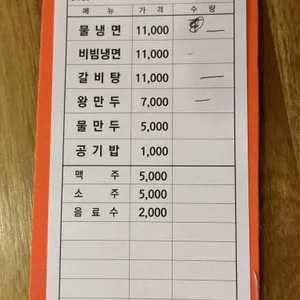 메 뉴 가 격 수 량
물 냉 면 11,000
비빔냉면 11,000
갈 비 탕 11,000
왕 만 두 7,000
물 만 두 5,000
공 기 밥 1,000
맥 주 5,000
소 주 5,000
음 료 수 2,000